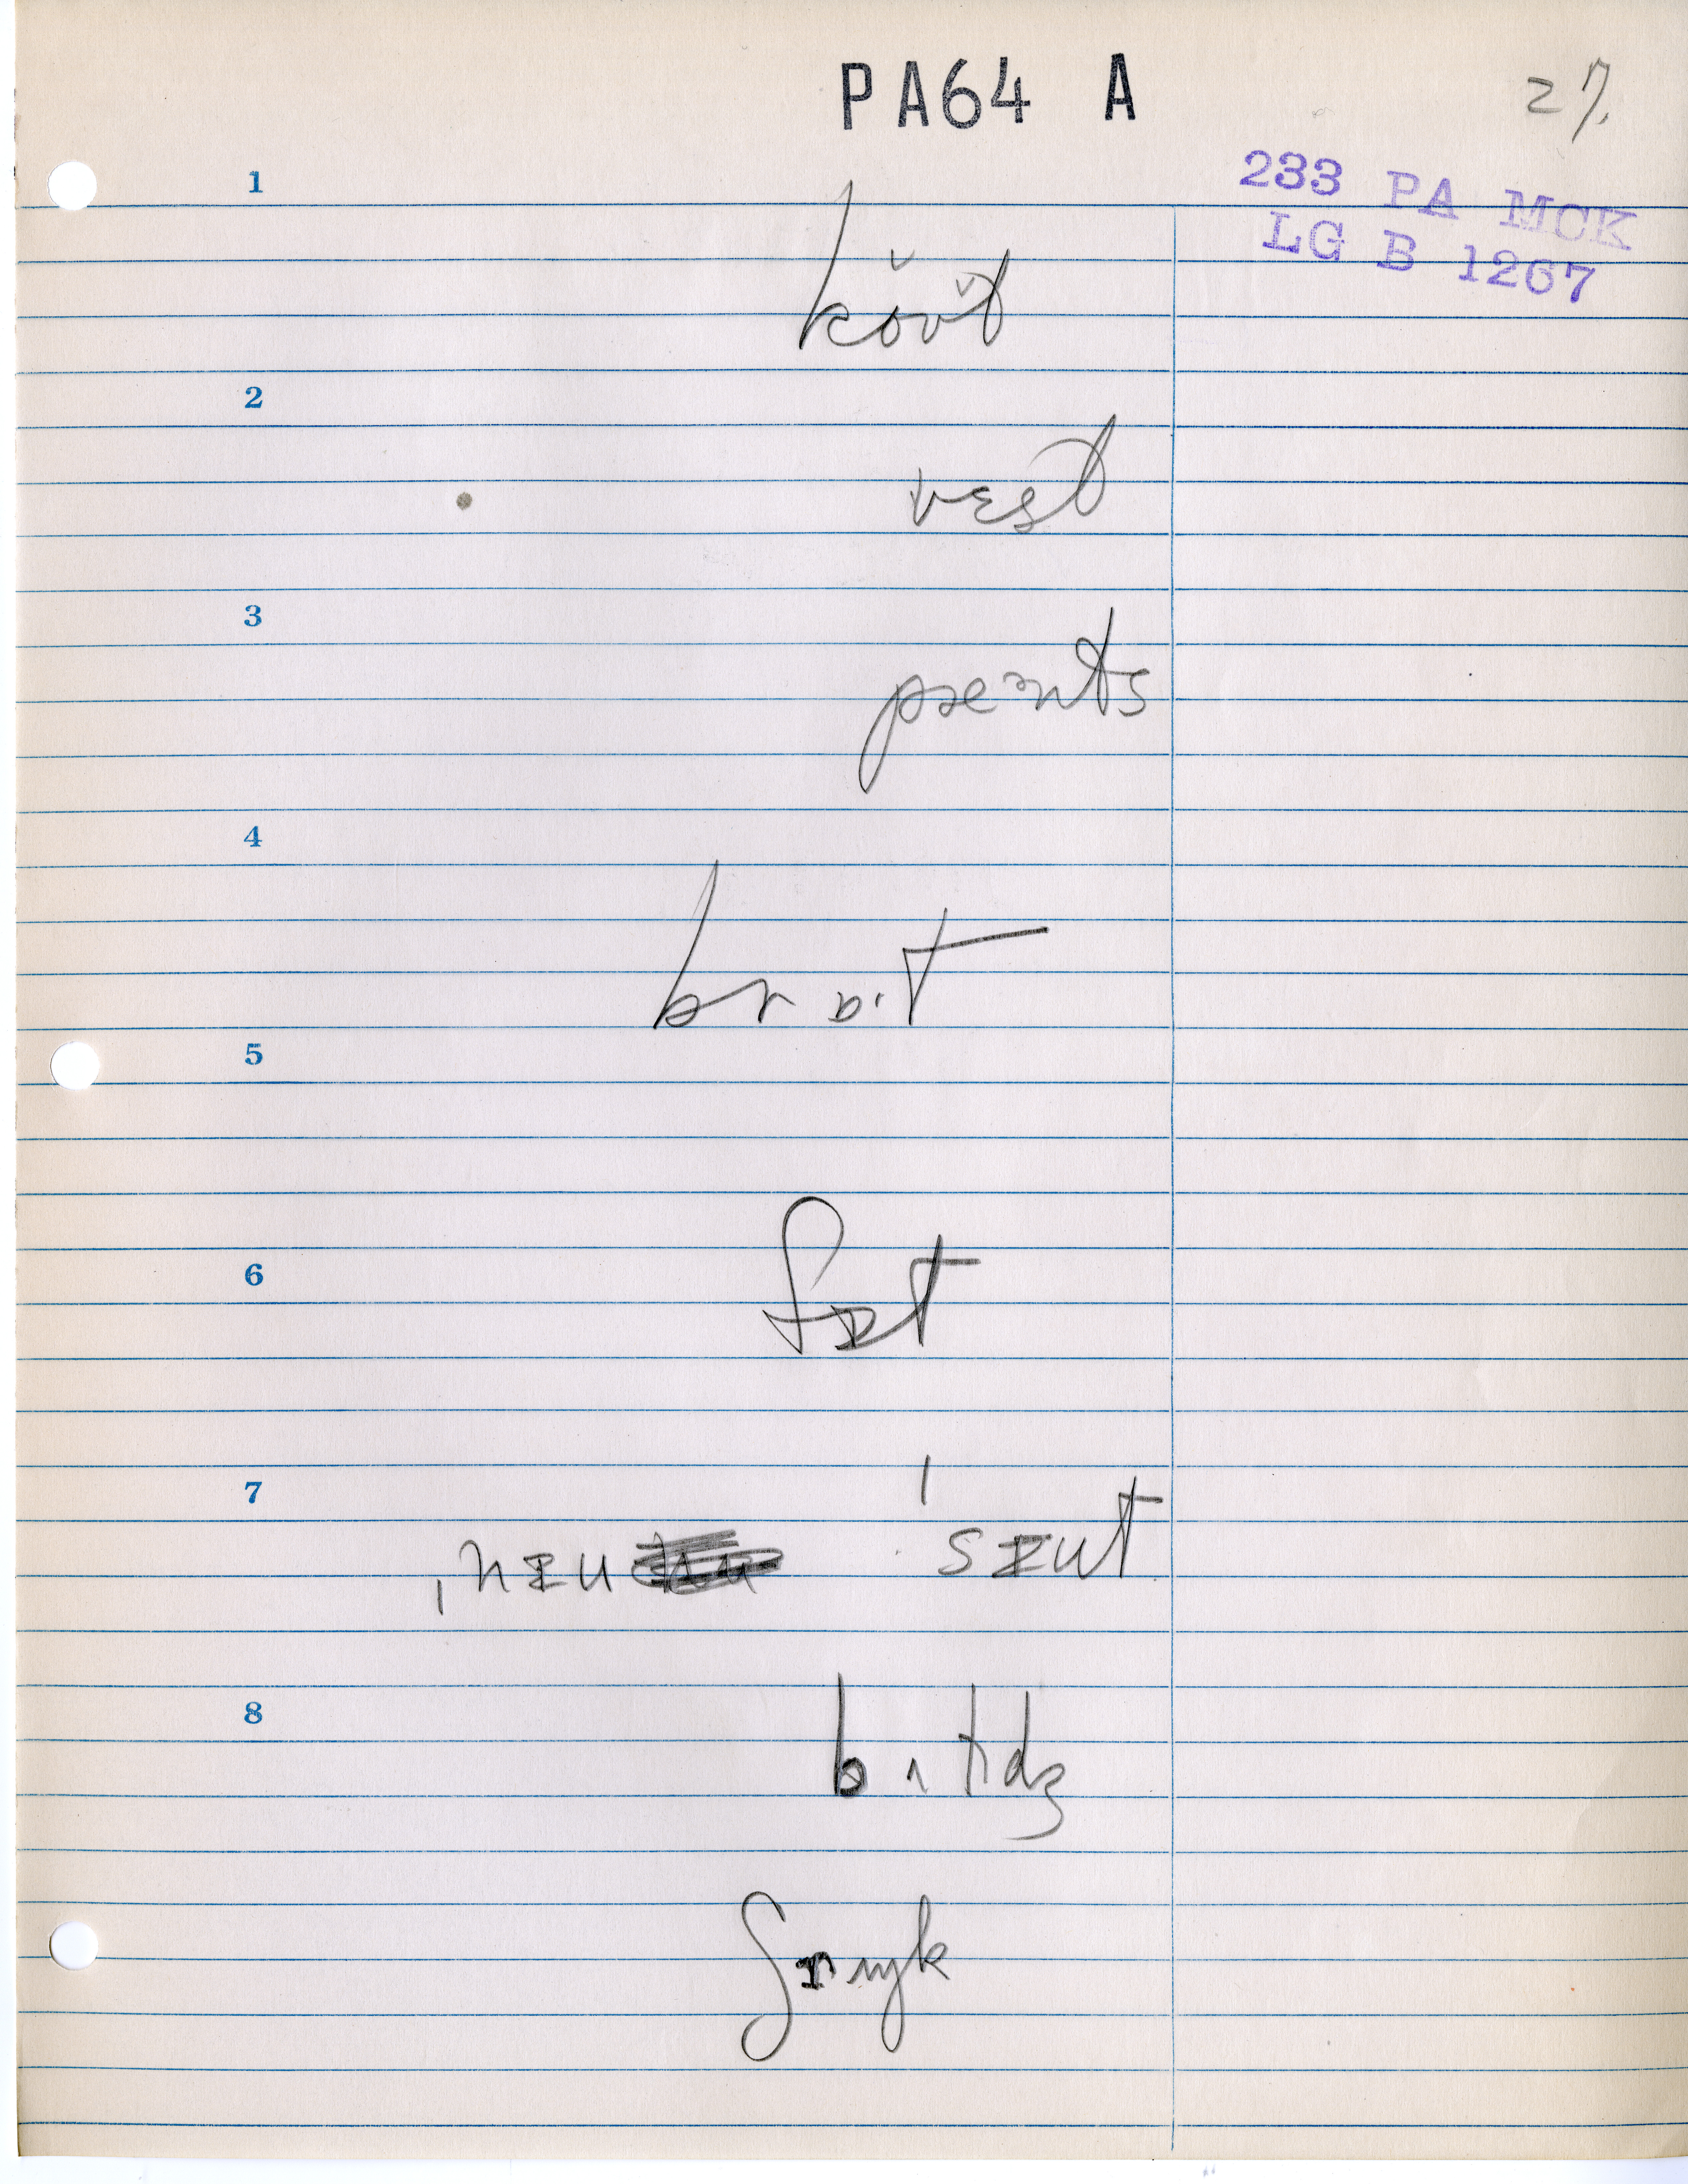 PA64 A
27.
233 PA MCK
LG B 1267
1
kŏvt̆
2
vɛst
3
pæᵊnts
4
brɒ·t
5
6
fɪt
7
ˌnɪu ˈsɪut
8
bʌldʒ
ʃrɪŋk